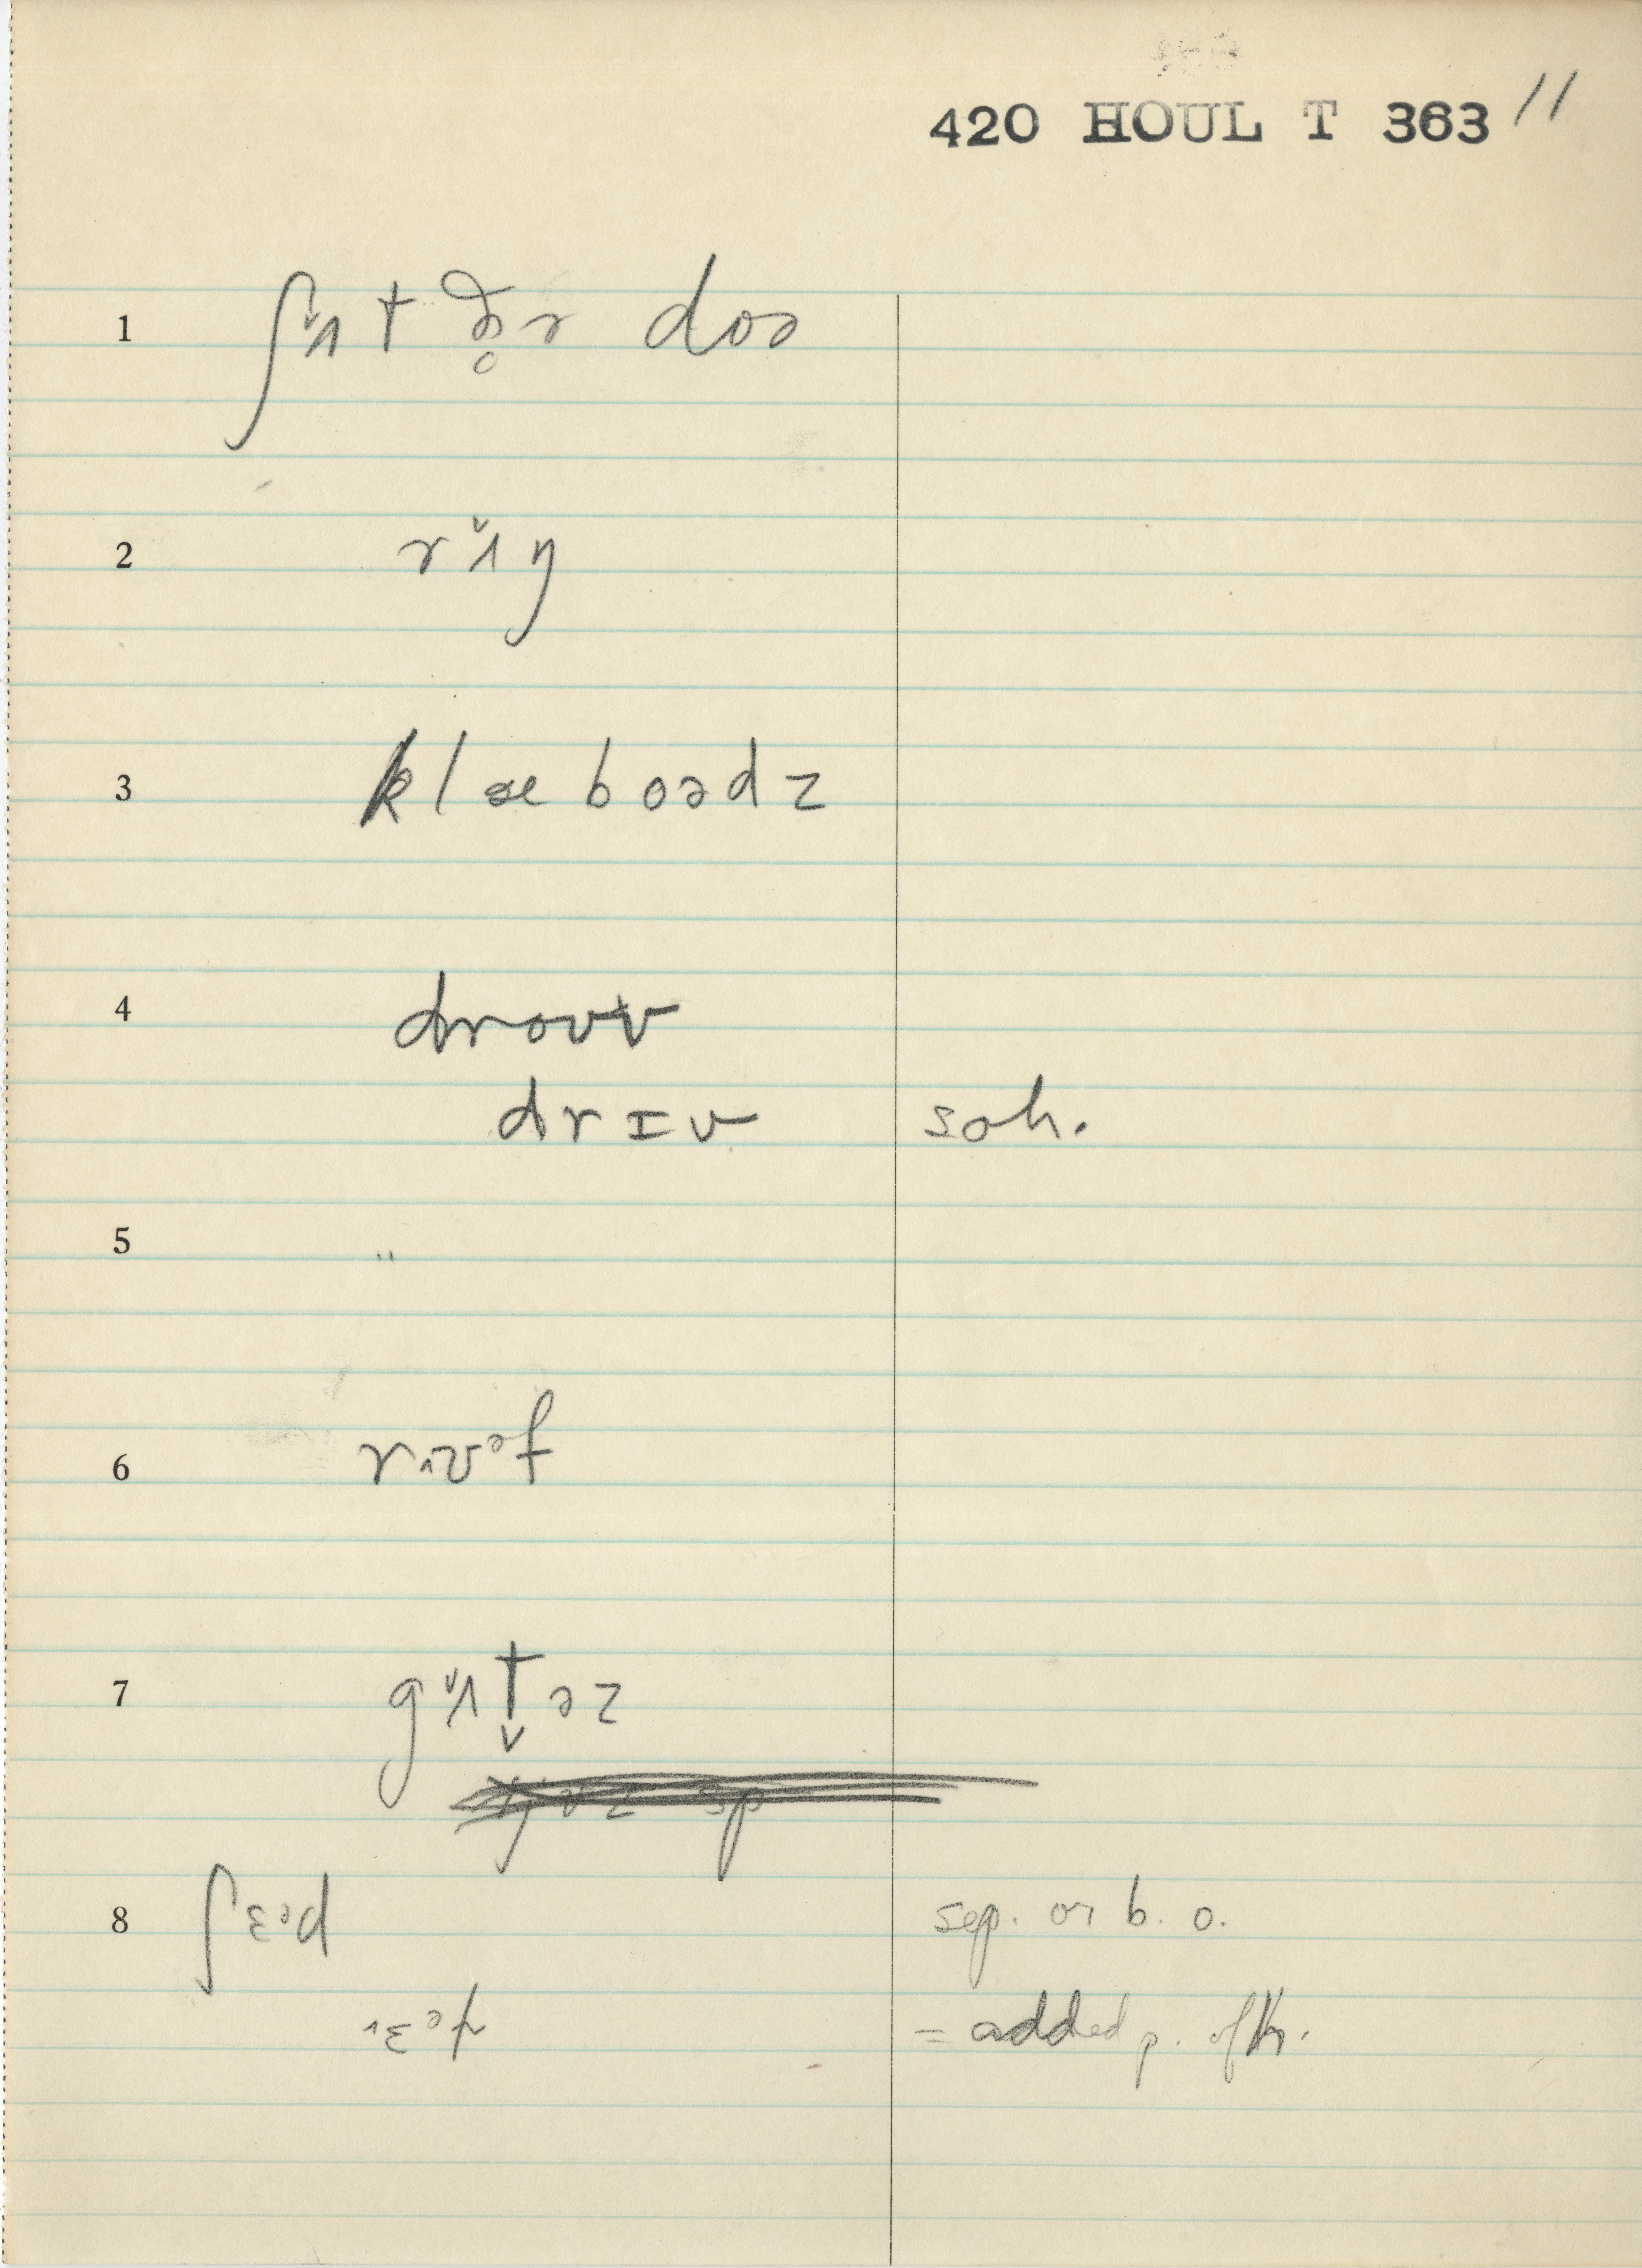 420 HOUL T 363 11
1 ʃʌ̌t ðə̥r doə
2 rʌ̌ɪŋ
3 klæboədz
4 droʊv
drɪv soh.
5 ..
6 rᴧʊᵊf
7 gʌ̌t̬əz
8 ʃɛᵊd sep. or b. o.
ɛᵊ = added p. of k.